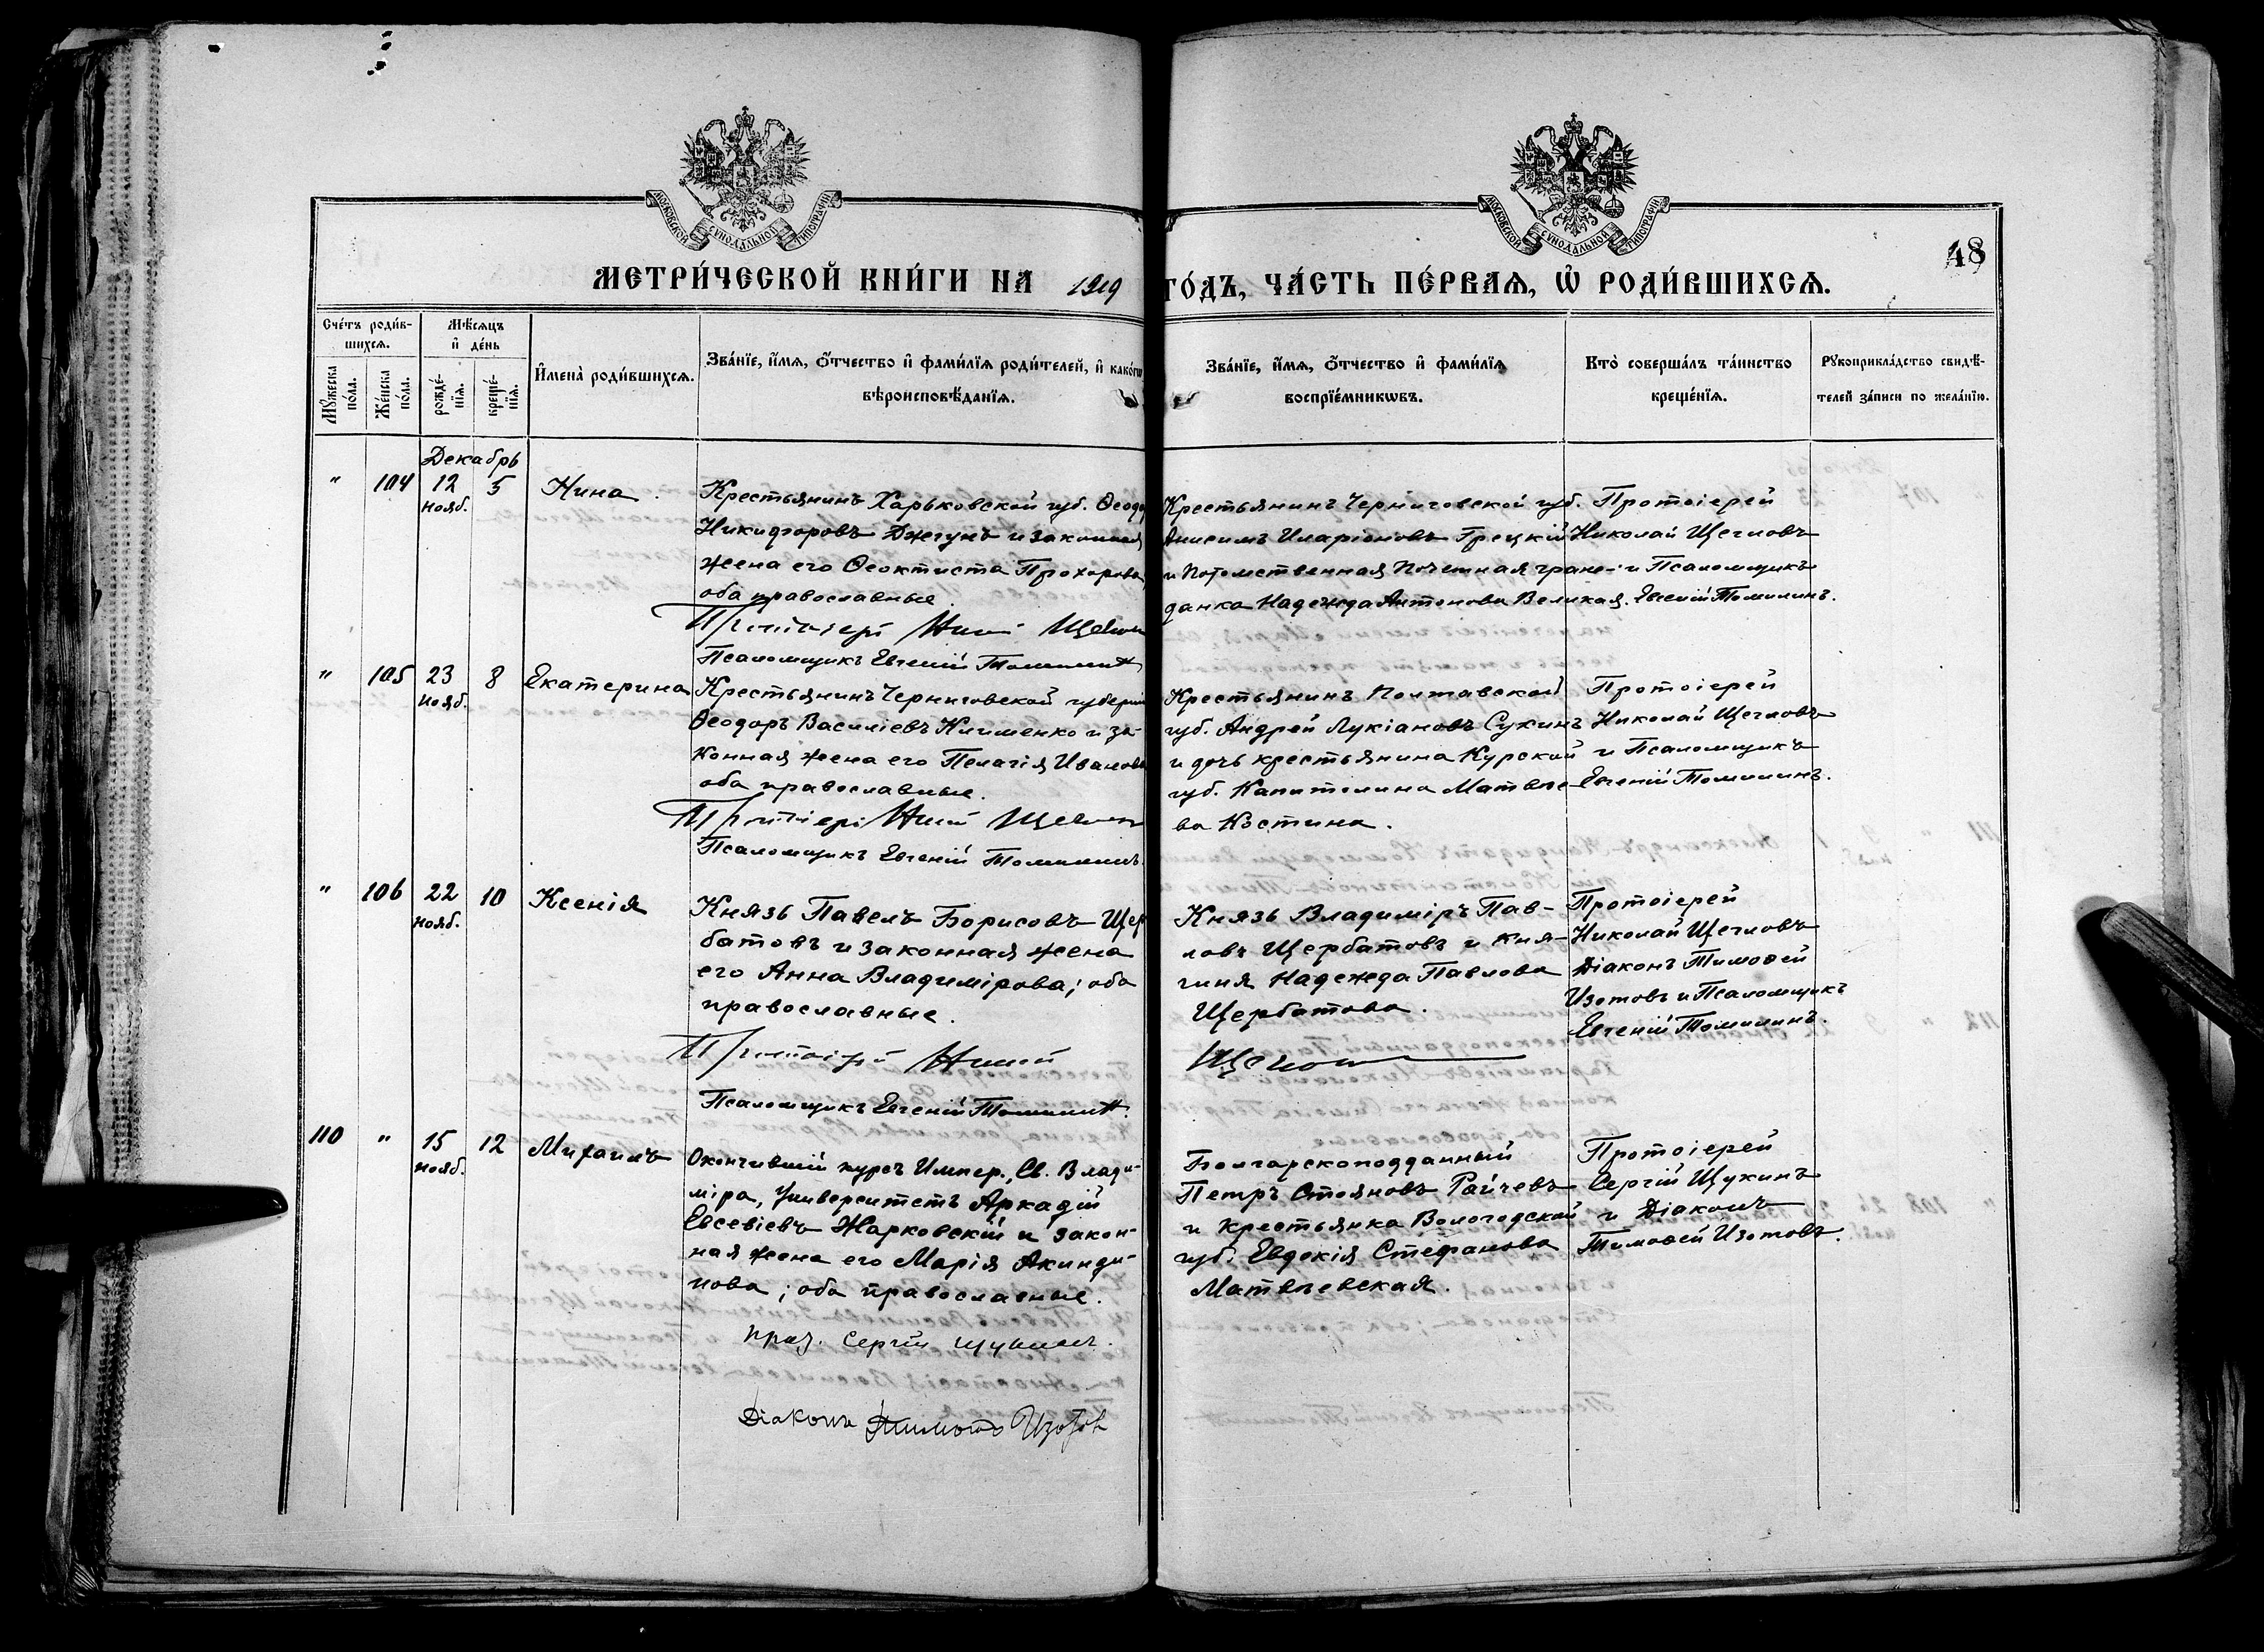 МОСКОВСКОЙ СѴНОДАЛЬНОЙ ТИПОГРАФІИ
МОСКОВСКОЙ СѴНОДАЛЬНОЙ ТИПОГРАФІИ
48
МЕТРИ́ЧЕСКОЙ КНИ́ГИ НА 1919 ГО́ДЪ, ЧА́СТЬ ПЕ́РВАѦ, Ѡ҆ РОДИ́ВШИХСѦ.
Сче́тъ роди́в-
шихсѧ.
Мѣ́сѧцъ
и҆ де́нь
Мꙋ́жеска
по́ла.
Же́нска
по́ла.
рожде́-
нїѧ.
креще́-
нїѧ.
И҆мена̀ роди́вшихсѧ.
Зва́нїе, и҆́мѧ, ѻ҆́тчество и҆ фами́лїѧ роди́телей, и҆ како́гѡ
вѣроисповѣ́данїѧ.
Зва́нїе, и҆́мѧ, ѻ҆́тчество и҆ фами́лїѧ
воспрїе́мникѡвъ.
Кто̀ соверша́лъ та́инство
креще́нїѧ.
Рꙋкоприкла́дство свидѣ́-
телей за́писи по жела́нїю.
Декабрь
" 104 12 5 Нина
нояб.
Крестьянинъ Харьковской губ. Ѳеодо
Никифоровъ Джегунъ и законная
жена его Ѳеоктиста Прохорова
оба православные.
Протоіерей Ник Щегловъ
Псаломщикъ Евгеній Томилинъ
Крестьянинъ Черниговской губ.
Анисимъ Иларіоновъ Грецкій
и потомственная почетная граж-
данка Надежда Антонова Великая.
Протоіерей
Николай Щегловъ
и Псаломщикъ
Евгеній Томилинъ.
" 105 23 8 Екатерина
нояб.
Крестьянинъ Черниговской губерніи
Ѳеодоръ Василіевъ Клименко и за-
конная жена его Пелагія Иванова
оба православные.
Протоіерей Ник Щегловъ
Псаломщикъ Евгеній Томилинъ.
Крестьянинъ Полтавской
губ. Андрей Лукіановъ Сухинъ
и дочь крестьянина Курской
губ. Капитолина Матвѣе-
ва Костина.
Протоіерей
Николай Щегловъ
и Псаломщикъ
Евгеній Томилинъ.
" 106 22 10 Ксенія
нояб.
Князь Павелъ Борисовъ Щер
батовъ и законная жена
его Анна Владимірова; оба
православные.
Протоіерей Николай
Псаломщикъ Евгеній Томилинъ.
Князь Владиміръ Пав-
ловъ Щербатовъ и кня-
гиня Надежда Павлова
Щербатова.
Щегловъ
Протоіерей
Николай Щегловъ
Діаконъ Тимоѳей
Изотовъ и Псаломщикъ
Евгеній Томилинъ.
110 " 15 12 Михаилъ
нояб.
Окончившій курсъ Импер. Св. Влади-
міра, Университетъ Аркадій
Евсевіевъ Жарковскій и закон-
ная жена его Марія Акинди-
нова; оба православные.
прот. Сергій Щукинъ.
Діаконъ Тимоѳей Изотов
Болгарскоподданный
Петръ Стояновъ Райчевъ
и крестьянка Вологодской
губ. Евдокія Стефанова
Матвѣевская.
Протоіерей
Сергій Щукинъ
и Діаконъ
Тимоѳей Изотовъ.